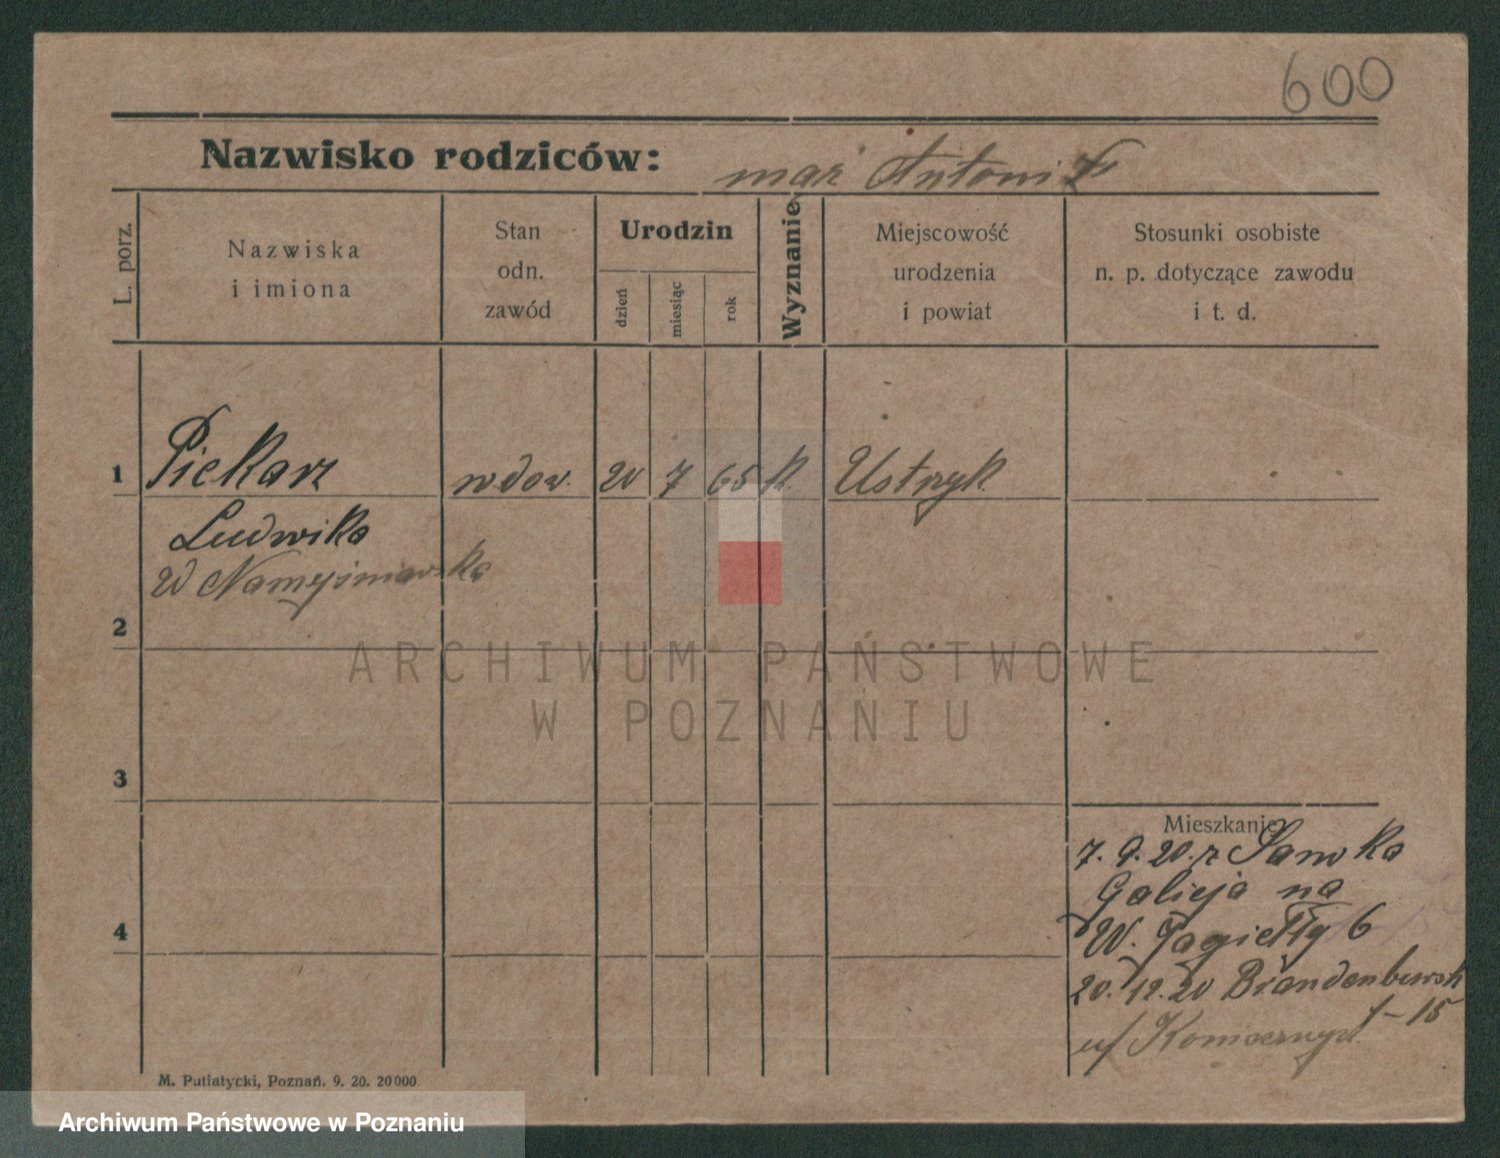 600
Nazwisko rodziców: mąż Antoni
L. porz.
Nazwiska
i imiona
Stan
odn.
zawód
Urodzin
dzień
miesiąc
rok
Wyznanie
Miejscowość
urodzenia
i powiat
Stosunki osobiste
n. p. dotyczące zawodu
i t. d.
1 Piekarz wdow. 20 7 65 k. Ustryk
Ludwika
2
3
4
Mieszkanie
7. 9. 20. r
Galicja na
W. Jagiełły 6
20. 12. 20 Brandenbursk
1-15
M. Putiatycki, Poznań. 9. 20. 20000.
ARCHIWUM PAŃSTWOWE
W POZNANIU
Archiwum Państwowe w Poznaniu